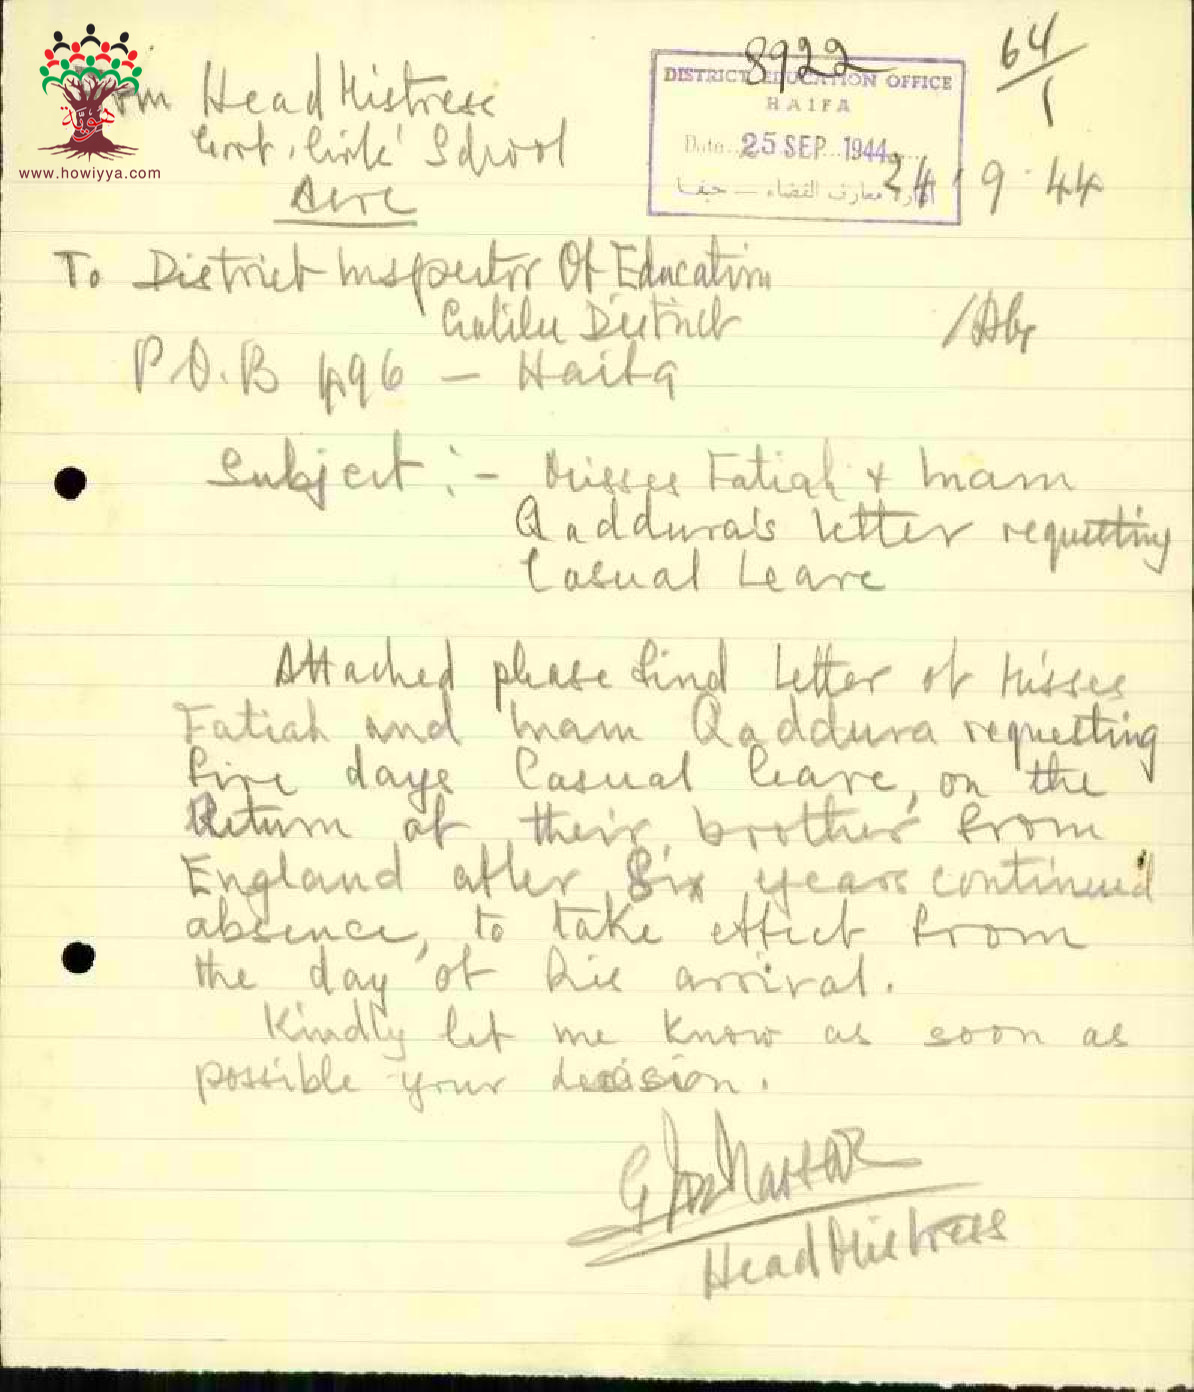 8922
64/1
From Head Mistress
Govt. Girls' School
Acre
DISTRICT EDUCATION OFFICE
HAIFA
Date 25 SEP 1944
ادارة معارف القضاء — حيفا
24.9.44
www.howiyya.com
To District Inspector Of Education
Galilee District
P.O.B 496 - Haifa
Subject :- Misses Fatiah & Inam
Qaddura's letter requesting
Casual Leave
Attached please find letter of Misses
Fatiah and Inam Qaddura requesting
five days Casual leave, on the
Return of their brother from
England after Six years continued
absence, to take effect from
the day of his arrival.
Kindly let me know as soon as
possible your decision.
Head Mistress